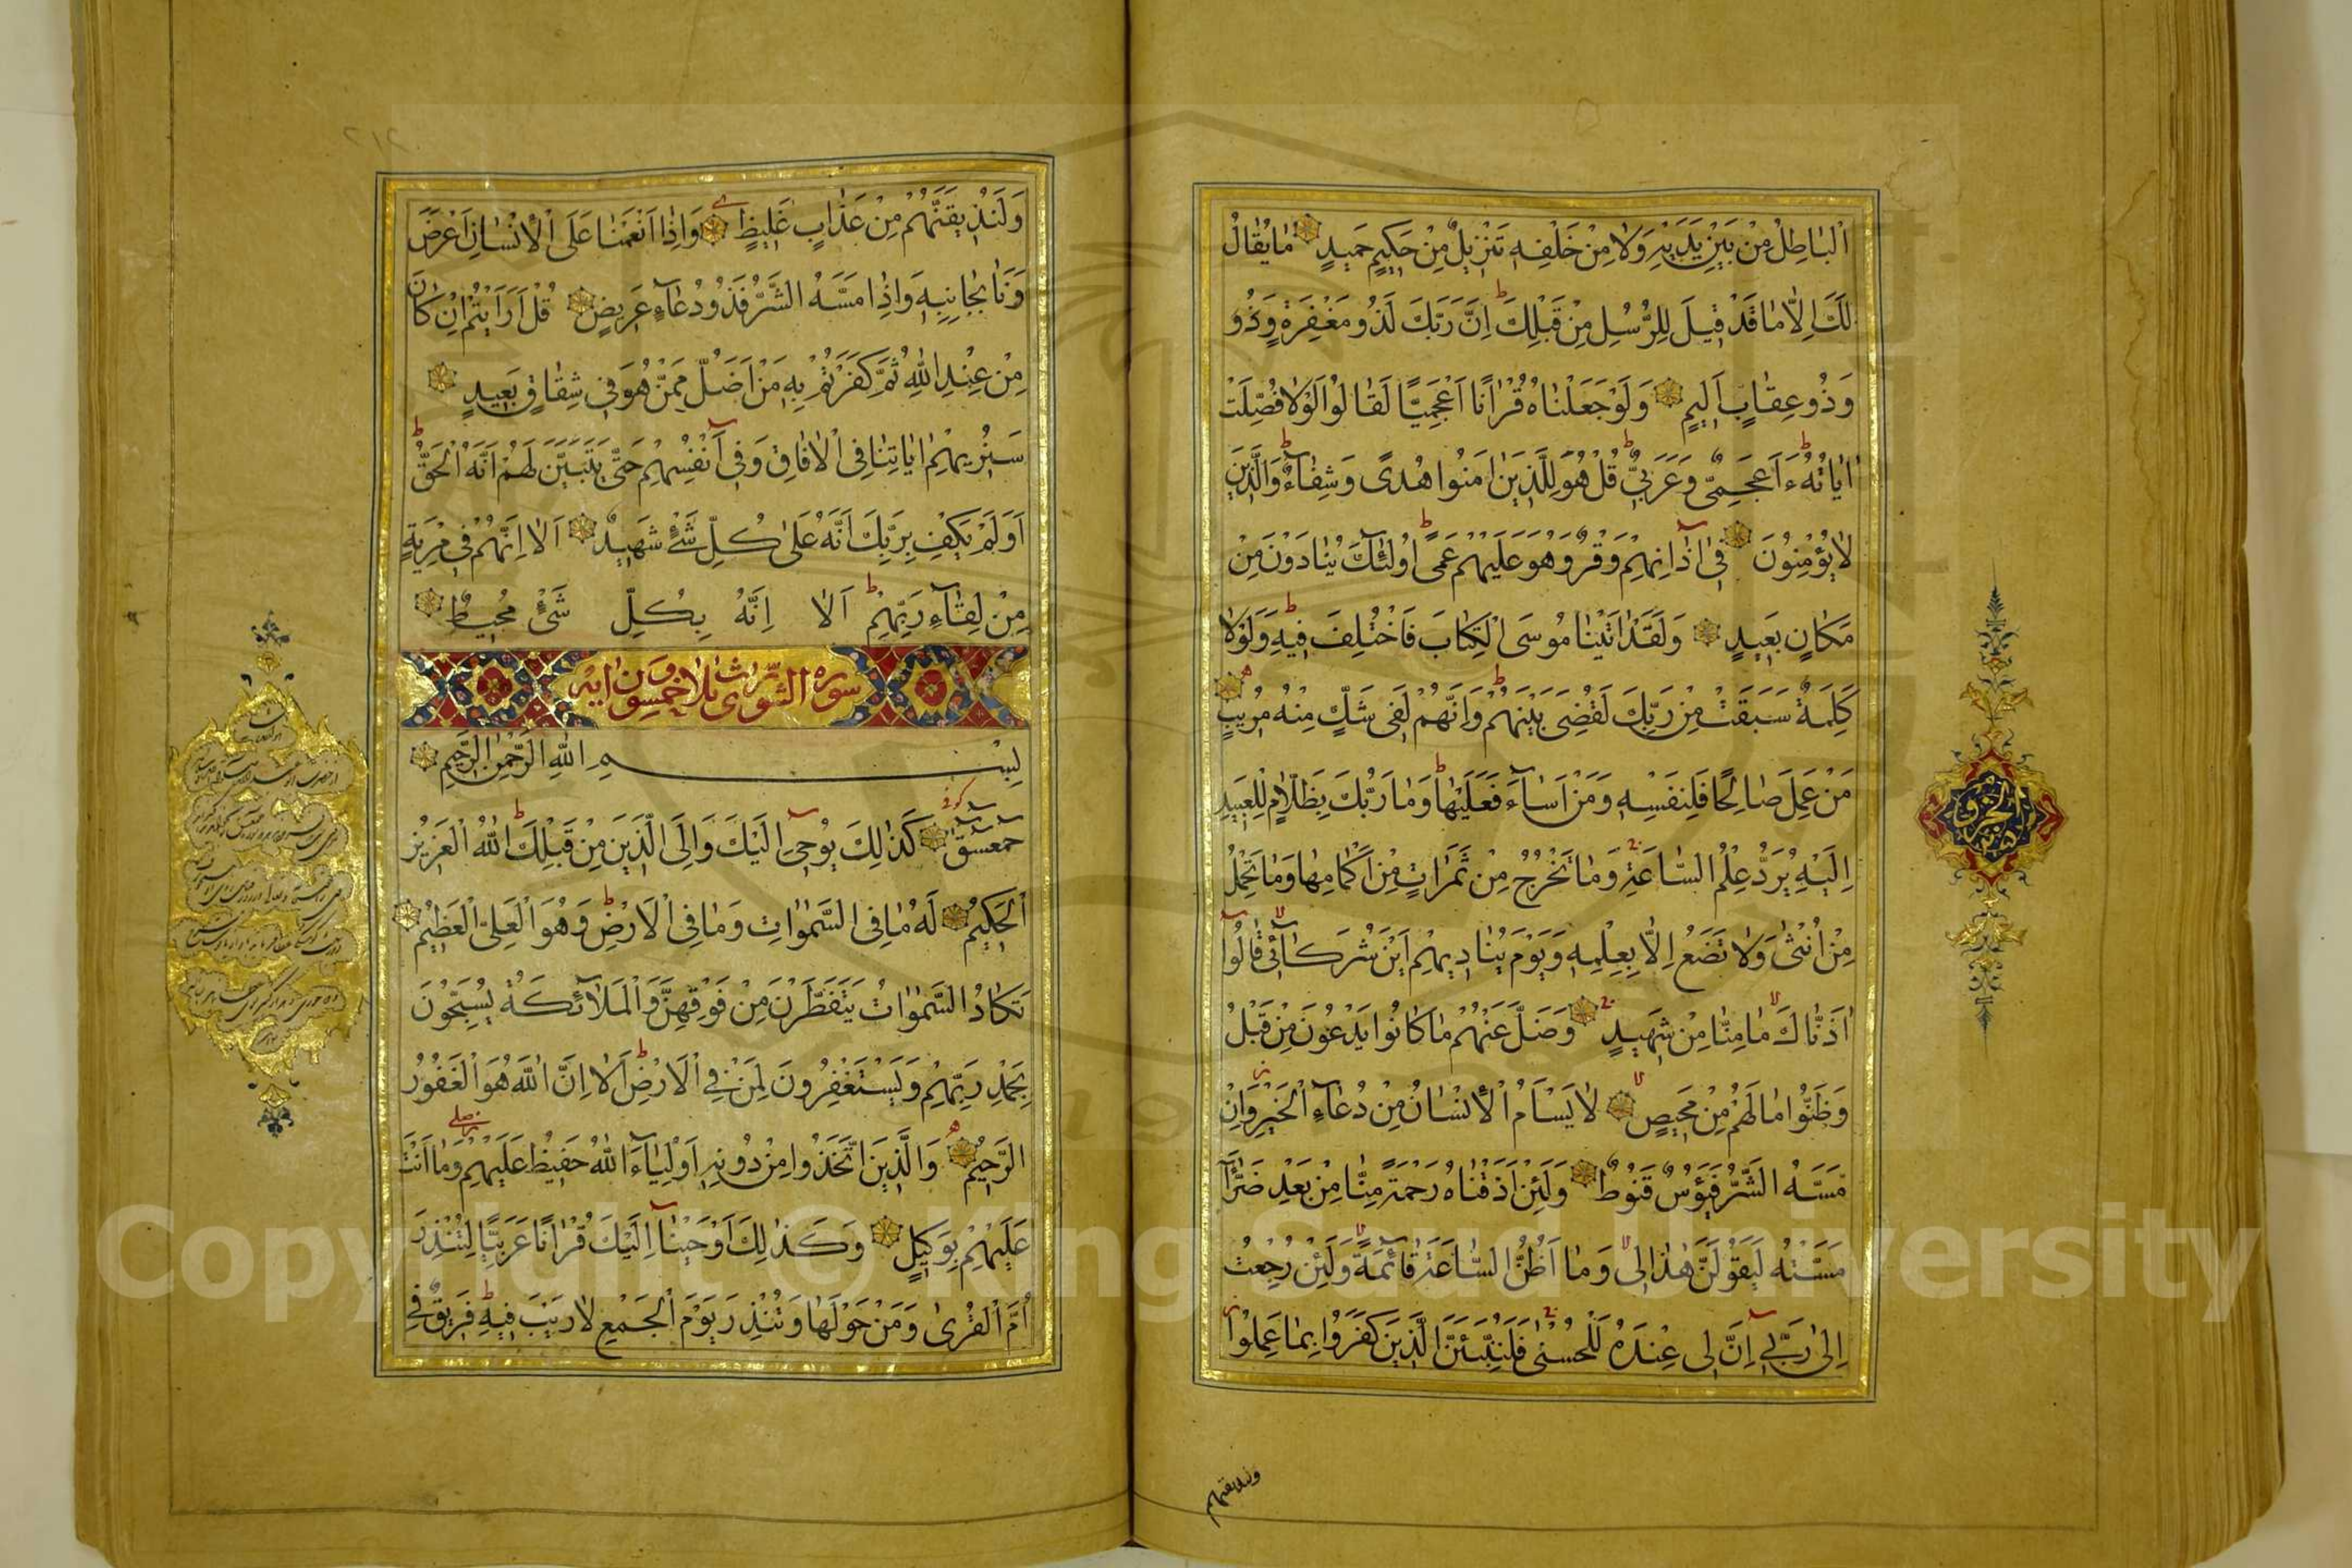 اَلْبَاطِلُ مِنْ بَيْنِ يَدَيْهِ وَلَا مِنْ خَلْفِهِ تَنْزِيلٌ مِنْ حَكِيمٍ حَمِيدٍ مَا يُقَالُ
لَكَ اِلَّا مَا قَدْ قِيلَ لِلرُّسُلِ مِنْ قَبْلِكَ ط اِنَّ رَبَّكَ لَذُو مَغْفِرَةٍ وَذُو
وَذُو عِقَابٍ اَلِيمٍ وَلَوْ جَعَلْنَاهُ قُرْاٰنًا اَعْجَمِيًّا لَقَالُوا لَوْلَا فُصِّلَتْ
اٰيَاتُهُ ط ءَاَعْجَمِىٌّ وَعَرَبِىٌّ ط قُلْ هُوَ لِلَّذِينَ اٰمَنُوا هُدًى وَشِفَآءٌ ط وَالَّذِينَ
لَا يُؤْمِنُونَ فِى اٰذَانِهِمْ وَقْرٌ وَهُوَ عَلَيْهِمْ عَمًى ط اُولٰٓئِكَ يُنَادَوْنَ مِنْ
مَكَانٍ بَعِيدٍ وَلَقَدْ اٰتَيْنَا مُوسَى الْكِتَابَ فَاخْتُلِفَ فِيهِ ط وَلَوْلَا
كَلِمَةٌ سَبَقَتْ مِنْ رَبِّكَ لَقُضِىَ بَيْنَهُمْ ط وَاِنَّهُمْ لَفِى شَكٍّ مِنْهُ مُرِيبٍ
مَنْ عَمِلَ صَالِحًا فَلِنَفْسِهِ وَمَنْ اَسَآءَ فَعَلَيْهَا ط وَمَا رَبُّكَ بِظَلَّامٍ لِلْعَبِيدِ
اِلَيْهِ يُرَدُّ عِلْمُ السَّاعَةِ وَمَا تَخْرُجُ مِنْ ثَمَرَاتٍ مِنْ اَكْمَامِهَا وَمَا تَحْمِلُ
مِنْ اُنْثٰى وَلَا تَضَعُ اِلَّا بِعِلْمِهِ وَيَوْمَ يُنَادِيهِمْ اَيْنَ شُرَكَآئِى قَالُوا
اٰذَنَّاكَ مَا مِنَّا مِنْ شَهِيدٍ وَضَلَّ عَنْهُمْ مَا كَانُوا يَدْعُونَ مِنْ قَبْلُ
وَظَنُّوا مَا لَهُمْ مِنْ مَحِيصٍ لَا يَسْاَمُ الْاِنْسَانُ مِنْ دُعَآءِ الْخَيْرِ وَاِنْ
مَسَّهُ الشَّرُّ فَيَؤُسٌ قَنُوطٌ وَلَئِنْ اَذَقْنَاهُ رَحْمَةً مِنَّا مِنْ بَعْدِ ضَرَّآءَ
مَسَّتْهُ لَيَقُولَنَّ هٰذَا لِى وَمَا اَظُنُّ السَّاعَةَ قَآئِمَةً وَلَئِنْ رُجِعْتُ
اِلٰى رَبِّى اِنَّ لِى عِنْدَهُ لَلْحُسْنٰى فَلَنُنَبِّئَنَّ الَّذِينَ كَفَرُوا بِمَا عَمِلُوا
ولنذيقنهم
وَلَنُذِيقَنَّهُمْ مِنْ عَذَابٍ غَلِيظٍ وَاِذَا اَنْعَمْنَا عَلَى الْاِنْسَانِ اَعْرَضَ
وَنَاٰ بِجَانِبِهِ وَاِذَا مَسَّهُ الشَّرُّ فَذُو دُعَآءٍ عَرِيضٍ قُلْ اَرَاَيْتُمْ اِنْ كَانَ
مِنْ عِنْدِ اللّٰهِ ثُمَّ كَفَرْتُمْ بِهِ مَنْ اَضَلُّ مِمَّنْ هُوَ فِى شِقَاقٍ بَعِيدٍ
سَنُرِيهِمْ اٰيَاتِنَا فِى الْاٰفَاقِ وَفِى اَنْفُسِهِمْ حَتّٰى يَتَبَيَّنَ لَهُمْ اَنَّهُ الْحَقُّ ط
اَوَلَمْ يَكْفِ بِرَبِّكَ اَنَّهُ عَلٰى كُلِّ شَىْءٍ شَهِيدٌ اَلَا اِنَّهُمْ فِى مِرْيَةٍ
مِنْ لِقَآءِ رَبِّهِمْ ط اَلَا اِنَّهُ بِكُلِّ شَىْءٍ مُحِيطٌ
سوره الشورى ثلاث وخمسون ايه
بِسْمِ اللّٰهِ الرَّحْمٰنِ الرَّحِيمِ
كوفى
حمعسق كَذٰلِكَ يُوحِى اِلَيْكَ وَاِلَى الَّذِينَ مِنْ قَبْلِكَ ط اللّٰهُ الْعَزِيزُ
الْحَكِيمُ لَهُ مَا فِى السَّمٰوَاتِ وَمَا فِى الْاَرْضِ ط وَهُوَ الْعَلِىُّ الْعَظِيمُ
تَكَادُ السَّمٰوَاتُ يَتَفَطَّرْنَ مِنْ فَوْقِهِنَّ وَالْمَلَآئِكَةُ يُسَبِّحُونَ
بِحَمْدِ رَبِّهِمْ وَيَسْتَغْفِرُونَ لِمَنْ فِى الْاَرْضِ ط اَلَا اِنَّ اللّٰهَ هُوَ الْغَفُورُ
الرَّحِيمُ وَالَّذِينَ اتَّخَذُوا مِنْ دُونِهِ اَوْلِيَآءَ اللّٰهُ حَفِيظٌ عَلَيْهِمْ وَمَا اَنْتَ
عَلَيْهِمْ بِوَكِيلٍ وَكَذٰلِكَ اَوْحَيْنَا اِلَيْكَ قُرْاٰنًا عَرَبِيًّا لِتُنْذِرَ
اُمَّ الْقُرٰى وَمَنْ حَوْلَهَا وَتُنْذِرَ يَوْمَ الْجَمْعِ لَا رَيْبَ فِيهِ ط فَرِيقٌ فِى
Copyright © King Saud University